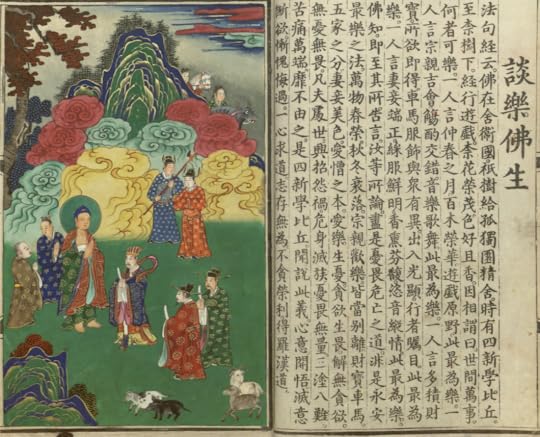 談樂佛生
法句經云佛在舍衛國祇樹給孤獨園精舍時有四新學比丘。
至柰樹下經行遊戲柰花榮茂色好且香因相謂曰世間萬事。
何者可樂。一人言仲春之月百木榮華遊戲原野此最為樂。一
人言宗親吉會觴酌交錯音樂歌舞此最為樂。一人言多積財
寶所欲即得車馬服飾與眾有異出入光顯行者矚目此最為
樂。一人言妻妾端正綵服鮮明香熏芬馥恣音縱情此最為樂。
佛知即至其所告言汝等所論盡是憂畏危亡之道非是永安
最樂之法萬物春榮秋冬衰落宗親歡樂皆當別離財寶車馬。
五家之分妻妾美色愛憎之本愛樂生憂貪欲生畏解無貪欲。
無憂無畏凡夫處世興招怨禍危身滅族憂畏無量三塗八難。
苦痛萬端靡不由之是四新學比丘聞說此義心意開悟滅意
斷欲慚愧悔過一心求道志存無為不貪榮利得羅漢道。